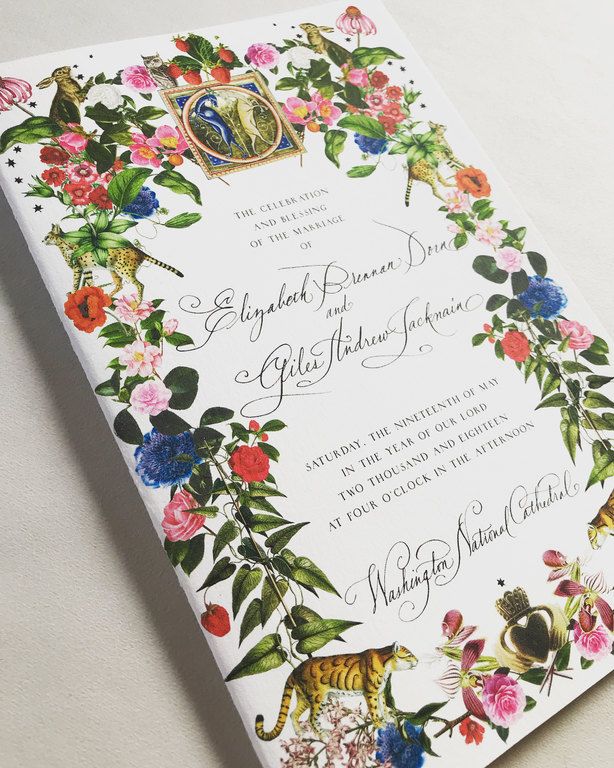 THE CELEBRATION
AND BLESSING
OF THE MARRIAGE
OF
Elizabeth Brennan Dorn
and
Giles Andrew Jacknain
SATURDAY, THE NINETEENTH OF MAY
IN THE YEAR OF OUR LORD
TWO THOUSAND AND EIGHTEEN
AT FOUR O'CLOCK IN THE AFTERNOON
Washington National Cathedral